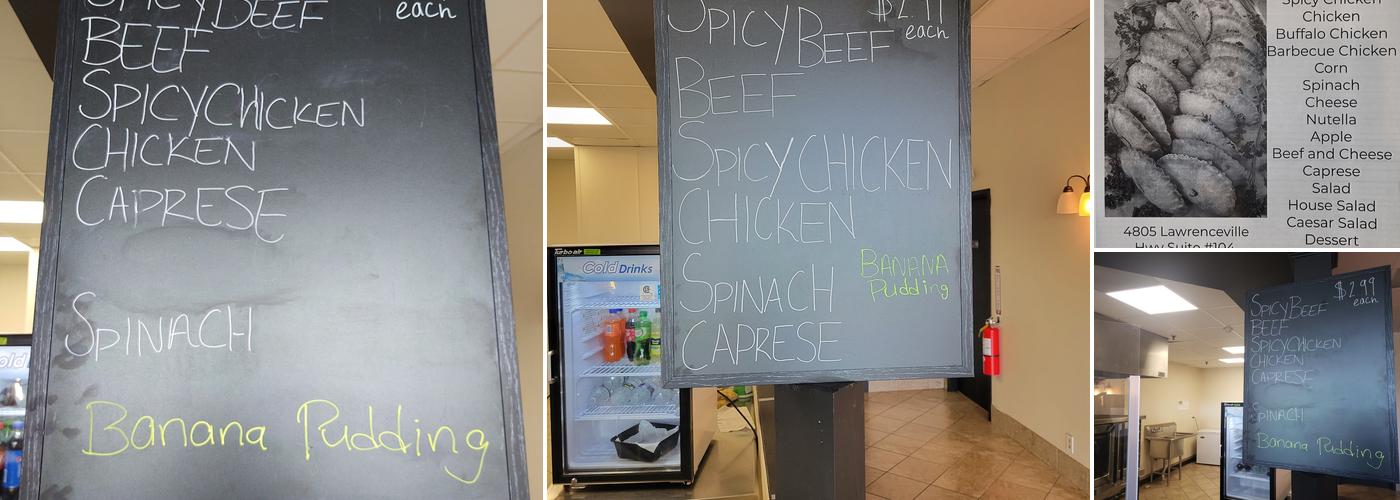 SPICY BEEF
each
BEEF
SPICY CHICKEN
CHICKEN
CAPRESE
SPINACH
Banana Pudding
SPICY BEEF
$2.99
each
BEEF
SPICY CHICKEN
CHICKEN
SPINACH
CAPRESE
BANANA
Pudding
Turbo air
Cold Drinks
Spicy Chicken
Chicken
Buffalo Chicken
Barbecue Chicken
Corn
Spinach
Cheese
Nutella
Apple
Beef and Cheese
Caprese
Salad
House Salad
Caesar Salad
Dessert
4805 Lawrenceville
Hwy Suite #104
$2.99
each
SPICY BEEF
BEEF
SPICY CHICKEN
CHICKEN
CAPRESE
SPINACH
Banana Pudding